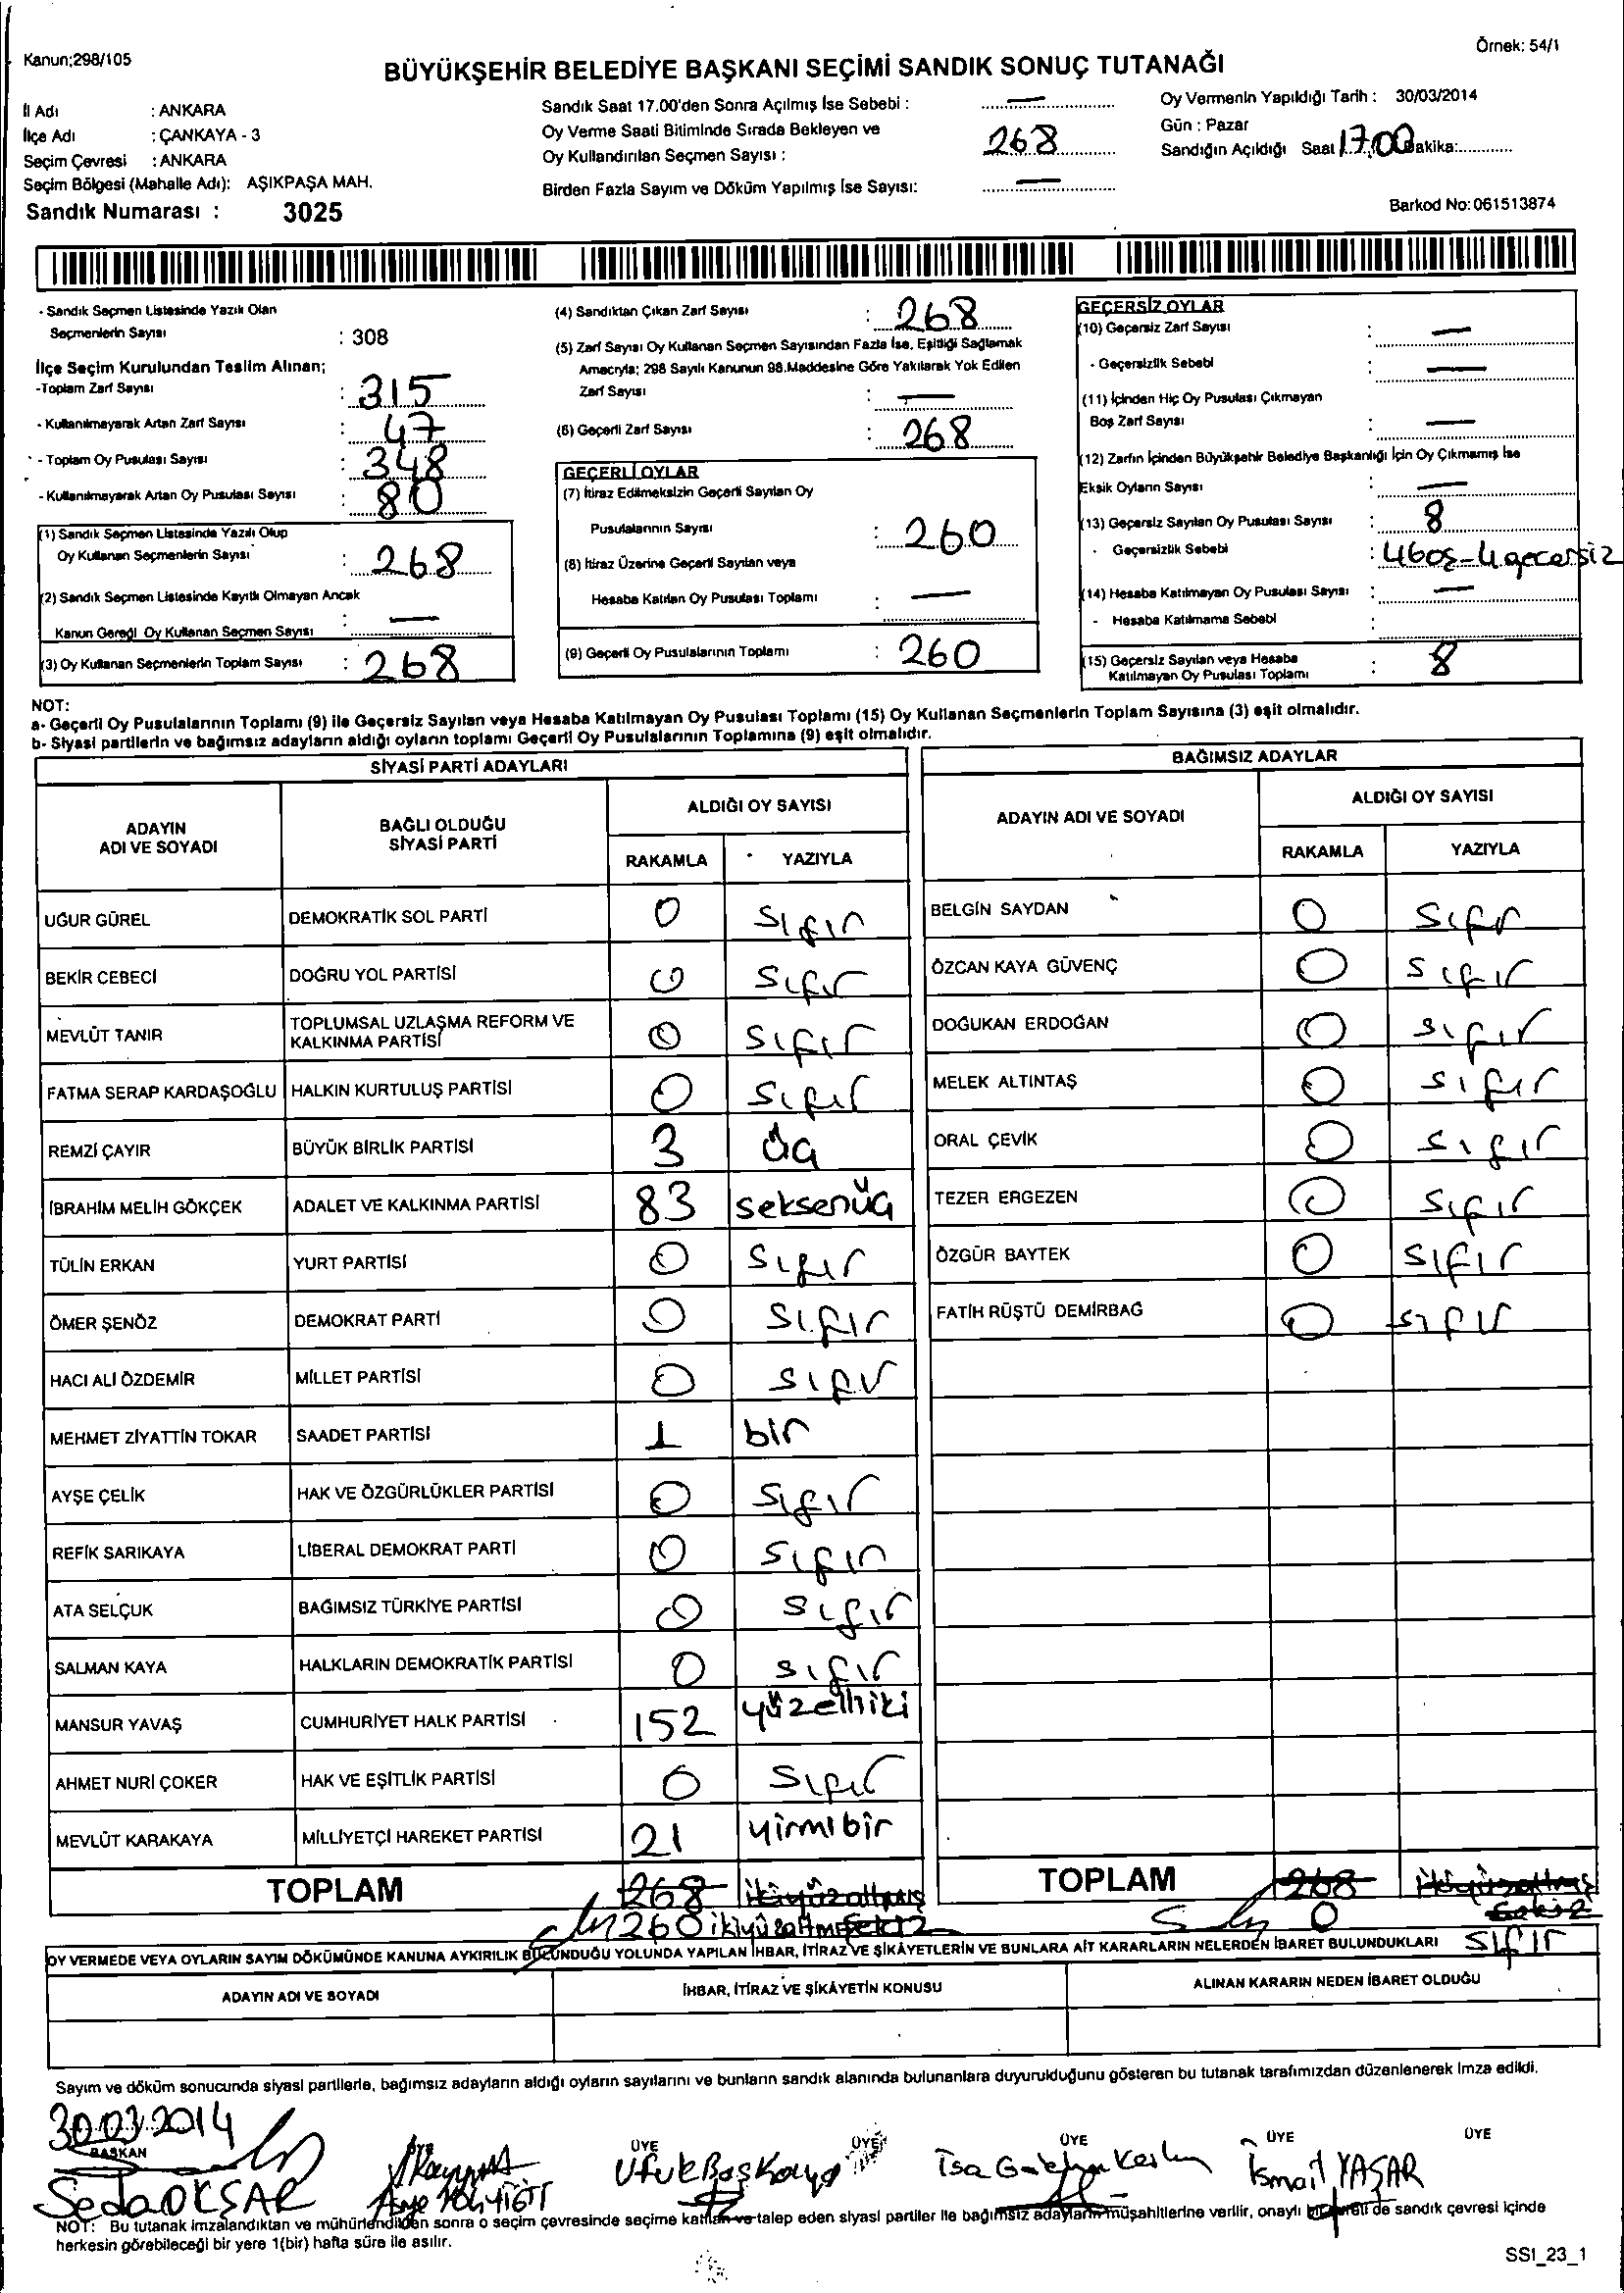 Kanun;298/105
Örnek: 54/1
BÜYÜKŞEHİR BELEDİYE BAŞKANI SEÇİMİ SANDIK SONUÇ TUTANAĞI
İl Adı : ANKARA
İlçe Adı : ÇANKAYA - 3
Seçim Çevresi : ANKARA
Seçim Bölgesi (Mahalle Adı): AŞIKPAŞA MAH.
Sandık Numarası : 3025
Sandık Saat 17.00'den Sonra Açılmış İse Sebebi : —
Oy Verme Saati Bitiminde Sırada Bekleyen ve
Oy Kullandırılan Seçmen Sayısı : 268
Birden Fazla Sayım ve Döküm Yapılmış İse Sayısı: —
Oy Vermenin Yapıldığı Tarih : 30/03/2014
Gün : Pazar
Sandığın Açıldığı Saat 17.00 Dakika:
Barkod No:061513874
- Sandık Seçmen Listesinde Yazılı Olan
Seçmenlerin Sayısı : 308
İlçe Seçim Kurulundan Teslim Alınan;
-Toplam Zarf Sayısı : 315
- Kullanılmayarak Artan Zarf Sayısı : 47
- Toplam Oy Pusulası Sayısı : 348
- Kullanılmayarak Artan Oy Pusulası Sayısı : 80
(1) Sandık Seçmen Listesinde Yazılı Olup
Oy Kullanan Seçmenlerin Sayısı : 268
(2) Sandık Seçmen Listesinde Kayıtlı Olmayan Ancak
Kanun Gereği Oy Kullanan Seçmen Sayısı : —
(3) Oy Kullanan Seçmenlerin Toplam Sayısı : 268
(4) Sandıktan Çıkan Zarf Sayısı : 268
(5) Zarf Sayısı Oy Kullanan Seçmen Sayısından Fazla İse, Eşitliği Sağlamak
Amacıyla; 298 Sayılı Kanunun 98.Maddesine Göre Yakılarak Yok Edilen
Zarf Sayısı : —
(6) Geçerli Zarf Sayısı : 268
GEÇERLİ OYLAR
(7) İtiraz Edilmeksizin Geçerli Sayılan Oy
Pusulalarının Sayısı : 260
(8) İtiraz Üzerine Geçerli Sayılan veya
Hesaba Katılan Oy Pusulası Toplamı : —
(9) Geçerli Oy Pusulalarının Toplamı : 260
GEÇERSİZ OYLAR
(10) Geçersiz Zarf Sayısı : —
- Geçersizlik Sebebi : —
(11) İçinden Hiç Oy Pusulası Çıkmayan
Boş Zarf Sayısı : —
(12) Zarfın İçinden Büyükşehir Belediye Başkanlığı İçin Oy Çıkmamış İse
Eksik Oyların Sayısı : —
(13) Geçersiz Sayılan Oy Pusulası Sayısı : 8
- Geçersizlik Sebebi : 4 boş - 4 geçersiz
(14) Hesaba Katılmayan Oy Pusulası Sayısı : —
- Hesaba Katılmama Sebebi :
(15) Geçersiz Sayılan veya Hesaba
Katılmayan Oy Pusulası Toplamı : 8
NOT:
a- Geçerli Oy Pusulalarının Toplamı (9) ile Geçersiz Sayılan veya Hesaba Katılmayan Oy Pusulası Toplamı (15) Oy Kullanan Seçmenlerin Toplam Sayısına (3) eşit olmalıdır.
b- Siyasi partilerin ve bağımsız adayların aldığı oyların toplamı Geçerli Oy Pusulalarının Toplamına (9) eşit olmalıdır.
SİYASİ PARTİ ADAYLARI
ADAYIN ADI VE SOYADI BAĞLI OLDUĞU SİYASİ PARTİ ALDIĞI OY SAYISI
RAKAMLA YAZIYLA
UĞUR GÜREL DEMOKRATİK SOL PARTİ 0 sıfır
BEKİR CEBECİ DOĞRU YOL PARTİSİ 0 sıfır
MEVLÜT TANIR TOPLUMSAL UZLAŞMA REFORM VE KALKINMA PARTİSİ 0 sıfır
FATMA SERAP KARDAŞOĞLU HALKIN KURTULUŞ PARTİSİ 0 sıfır
REMZİ ÇAYIR BÜYÜK BİRLİK PARTİSİ 3 üç
İBRAHİM MELİH GÖKÇEK ADALET VE KALKINMA PARTİSİ 83 seksenüç
TÜLİN ERKAN YURT PARTİSİ 0 sıfır
ÖMER ŞENÖZ DEMOKRAT PARTİ 0 sıfır
HACI ALİ ÖZDEMİR MİLLET PARTİSİ 0 sıfır
MEHMET ZİYATTİN TOKAR SAADET PARTİSİ 1 bir
AYŞE ÇELİK HAK VE ÖZGÜRLÜKLER PARTİSİ 0 sıfır
REFİK SARIKAYA LİBERAL DEMOKRAT PARTİ 0 sıfır
ATA SELÇUK BAĞIMSIZ TÜRKİYE PARTİSİ 0 sıfır
SALMAN KAYA HALKLARIN DEMOKRATİK PARTİSİ 0 sıfır
MANSUR YAVAŞ CUMHURİYET HALK PARTİSİ 152 yüzelliiki
AHMET NURİ ÇOKER HAK VE EŞİTLİK PARTİSİ 0 sıfır
MEVLÜT KARAKAYA MİLLİYETÇİ HAREKET PARTİSİ 21 yirmibir
TOPLAM 268 ikiyüzaltmış sekiz
260 ikiyüzaltmış
BAĞIMSIZ ADAYLAR
ADAYIN ADI VE SOYADI ALDIĞI OY SAYISI
RAKAMLA YAZIYLA
BELGİN SAYDAN 0 sıfır
ÖZCAN KAYA GÜVENÇ 0 sıfır
DOĞUKAN ERDOĞAN 0 sıfır
MELEK ALTINTAŞ 0 sıfır
ORAL ÇEVİK 0 sıfır
TEZER ERGEZEN 0 sıfır
ÖZGÜR BAYTEK 0 sıfır
FATİH RÜŞTÜ DEMİRBAĞ 0 sıfır
TOPLAM 268 ikiyüzaltmış sekiz
0 sıfır
OY VERMEDE VEYA OYLARIN SAYIM DÖKÜMÜNDE KANUNA AYKIRILIK BULUNDUĞU YOLUNDA YAPILAN İHBAR, İTİRAZ VE ŞİKÂYETLERİN VE BUNLARA AİT KARARLARIN NELERDEN İBARET BULUNDUKLARI
ADAYIN ADI VE SOYADI İHBAR, İTİRAZ VE ŞİKÂYETİN KONUSU ALINAN KARARIN NEDEN İBARET OLDUĞU
Sayım ve döküm sonucunda siyasi partilerle, bağımsız adayların aldığı oyların sayılarını ve bunların sandık alanında bulunanlara duyurulduğunu gösteren bu tutanak tarafımızdan düzenlenerek imza edildi.
30.03.2014
BAŞKAN ÜYE ÜYE ÜYE ÜYE ÜYE ÜYE
Seda OKŞAR Ufuk Başkaya İsa Gökhan Keskin İsmail YAŞAR
NOT: Bu tutanak imzalandıktan ve mühürlendikten sonra o seçim çevresinde seçime katılan ve talep eden siyasi partiler ile bağımsız adayların müşahitlerine verilir, onaylı bir sureti de sandık çevresi içinde
herkesin görebileceği bir yere 1(bir) hafta süre ile asılır.
SSI_23_1